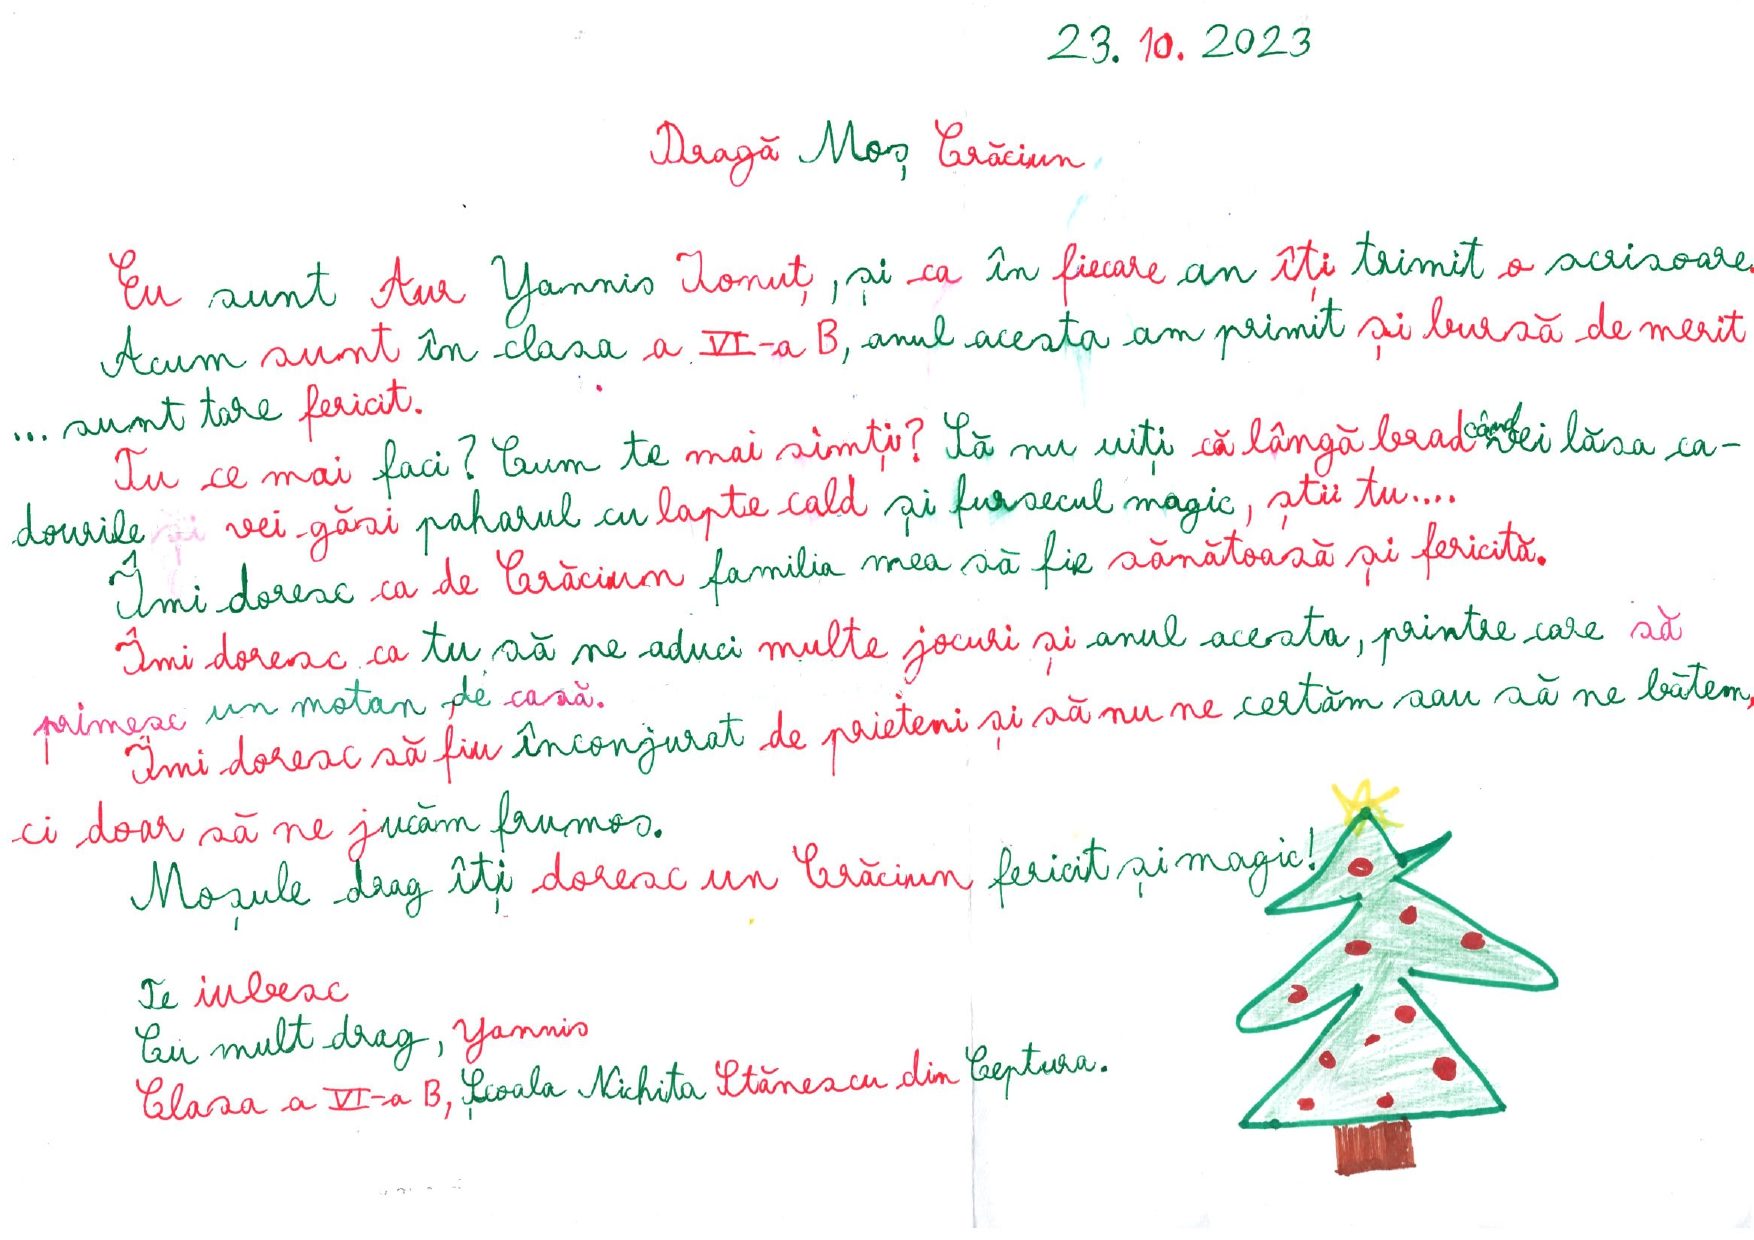 23. 10. 2023
Dragă Moș Crăciun
Eu sunt Aur Yannis Ionuț, și ca în fiecare an îți trimit o scrisoare.
Acum sunt în clasa a VI-a B, anul acesta am primit și bursă de merit
... sunt tare fericit.
Tu ce mai faci? Cum te mai simți? Să nu uiți că lângă brad când vei lăsa ca-
dourile și vei găsi paharul cu lapte cald și fursecul magic, știi tu....
Îmi doresc ca de Crăciun familia mea să fie sănătoasă și fericită.
Îmi doresc ca tu să ne aduci multe jocuri și anul acesta, printre care să
primesc un motan de casă.
Îmi doresc să fiu înconjurat de prieteni și să nu ne certăm sau să ne bătem,
ci doar să ne jucăm frumos.
Moșule drag îți doresc un Crăciun fericit și magic!
Te iubesc
Cu mult drag, Yannis
Clasa a VI-a B, Școala Nichita Stănescu din Ceptura.